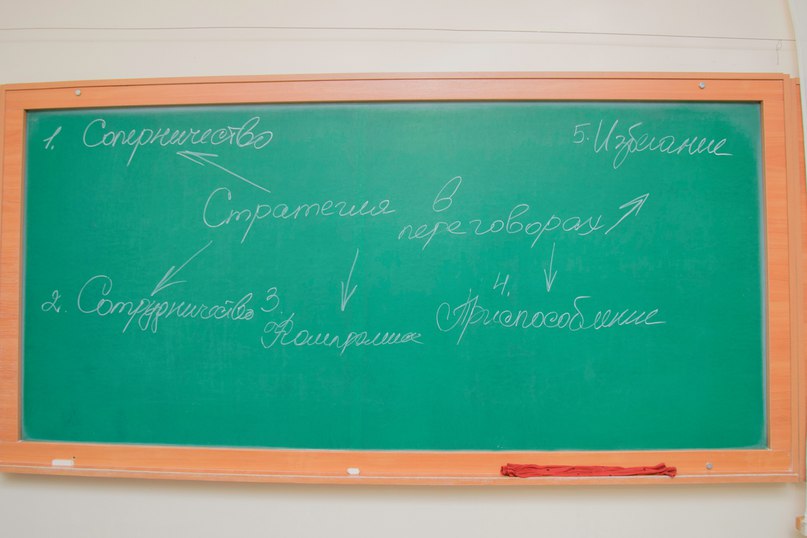 1. Соперничество
5. Избегание
Стратегия в
переговорах
2. Сотрудничество
3. Компромисс
4. Приспособление